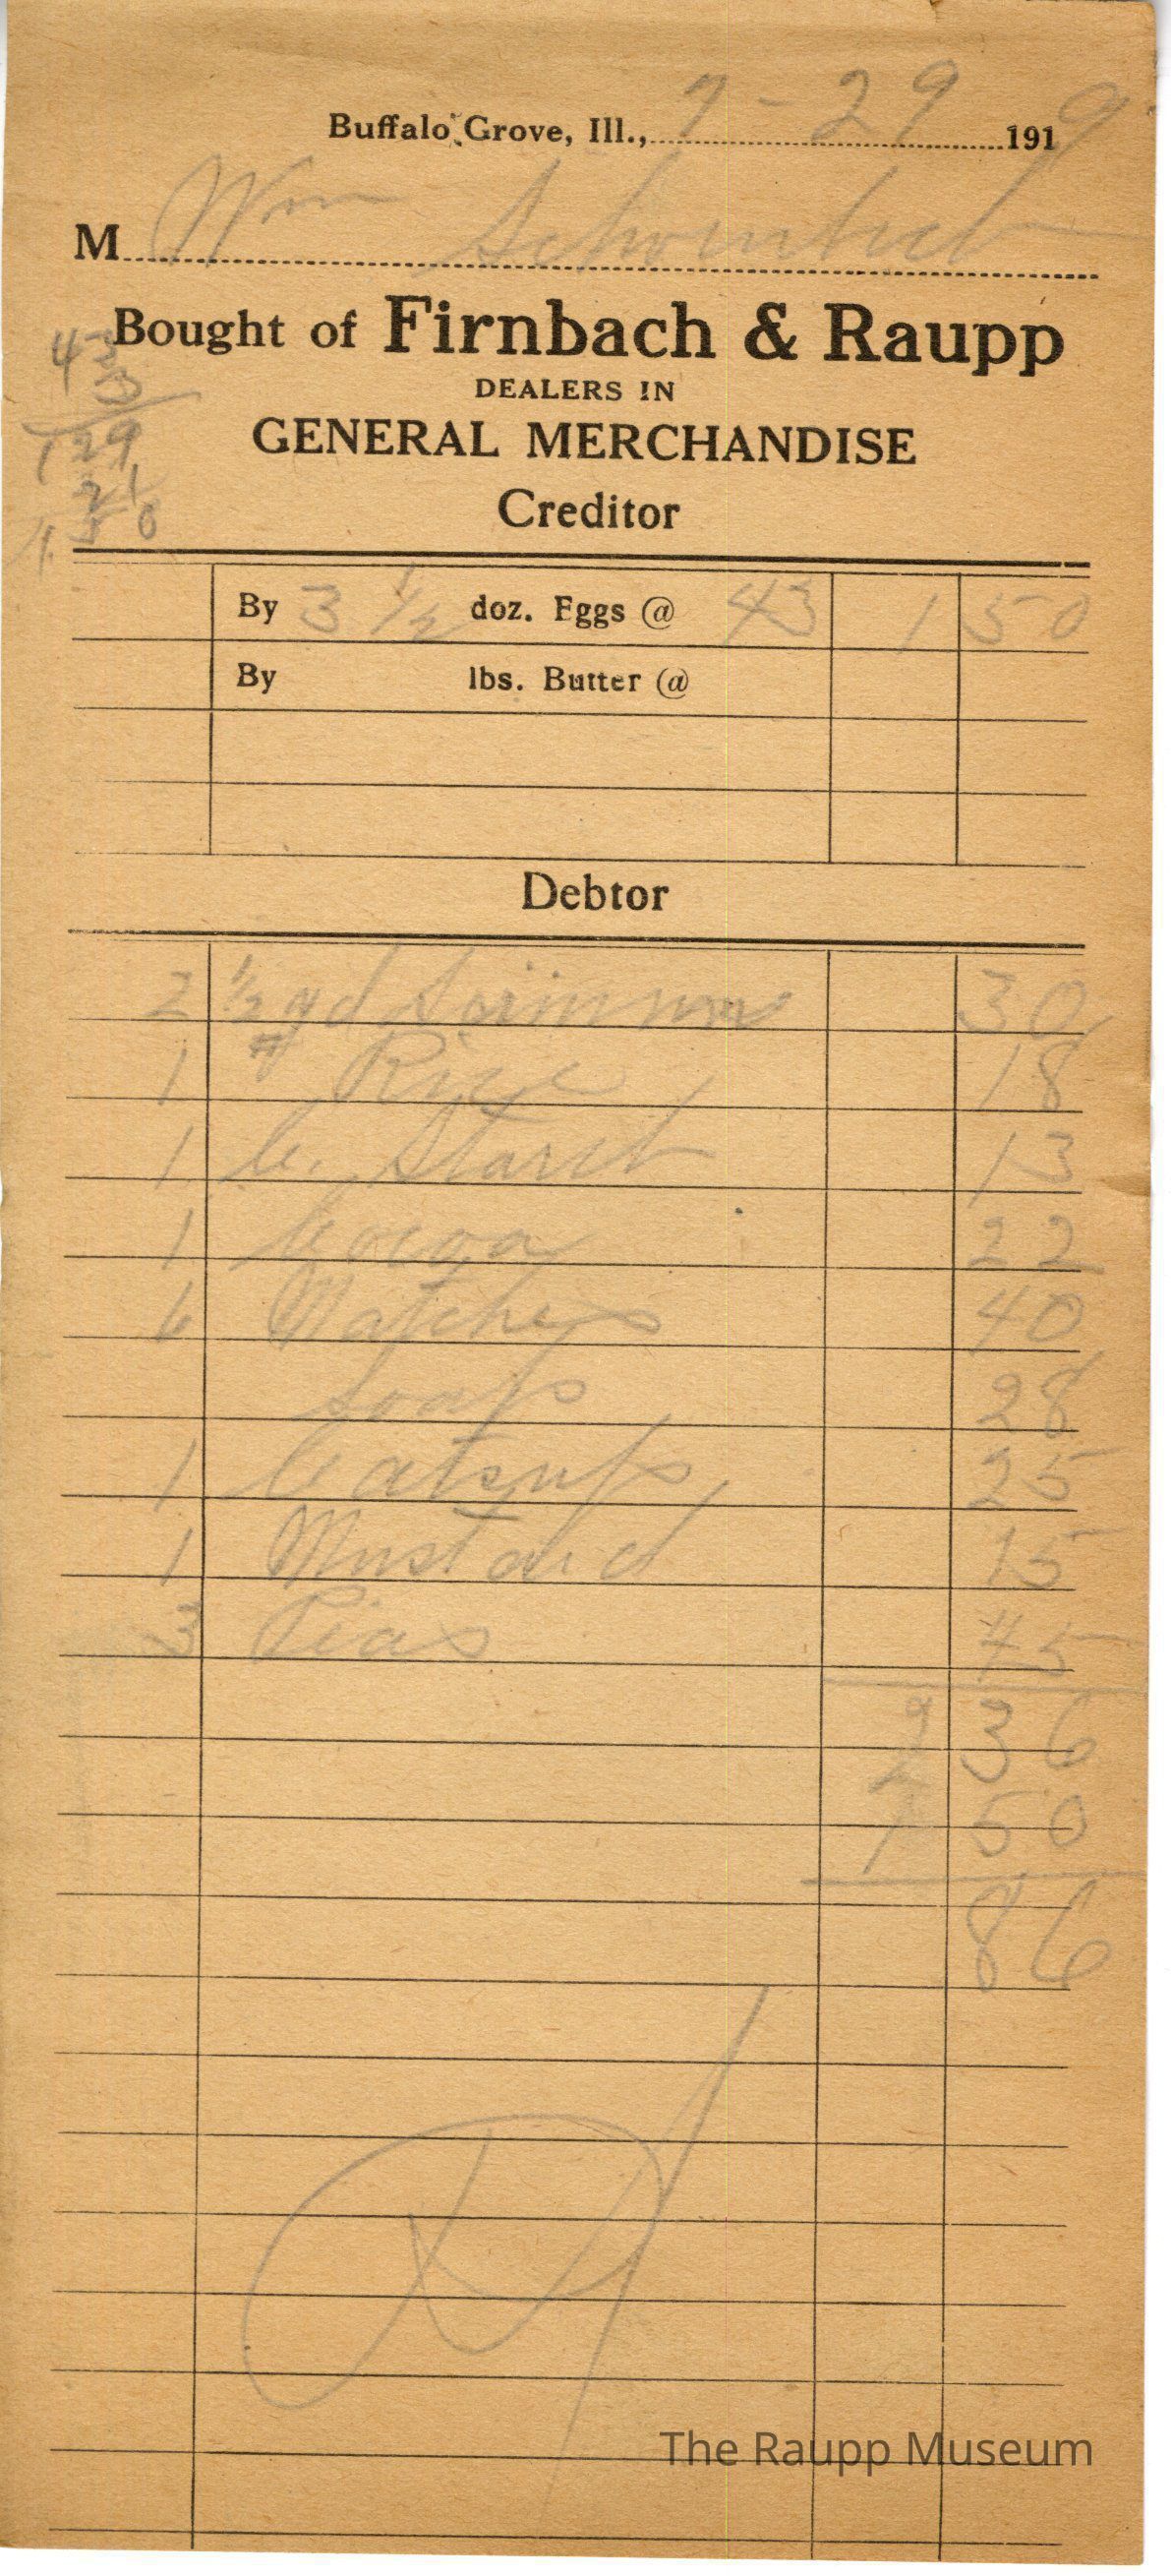 Buffalo Grove, Ill., 7-29 1919
M Wm
Bought of Firnbach & Raupp
DEALERS IN
GENERAL MERCHANDISE
Creditor
43
3
129
21
1.50
By 3 1/2 doz. Eggs @ 43 1 50
By lbs. Butter @
Debtor
2 1/2 yd 30
1 # Rice 18
1 C. Starch 13
1 Cocoa 22
6 Matches 40
Soap 28
1 Catsup 25
1 Mustard 15
3 Peas 45
2 36
1 50
86
The Raupp Museum